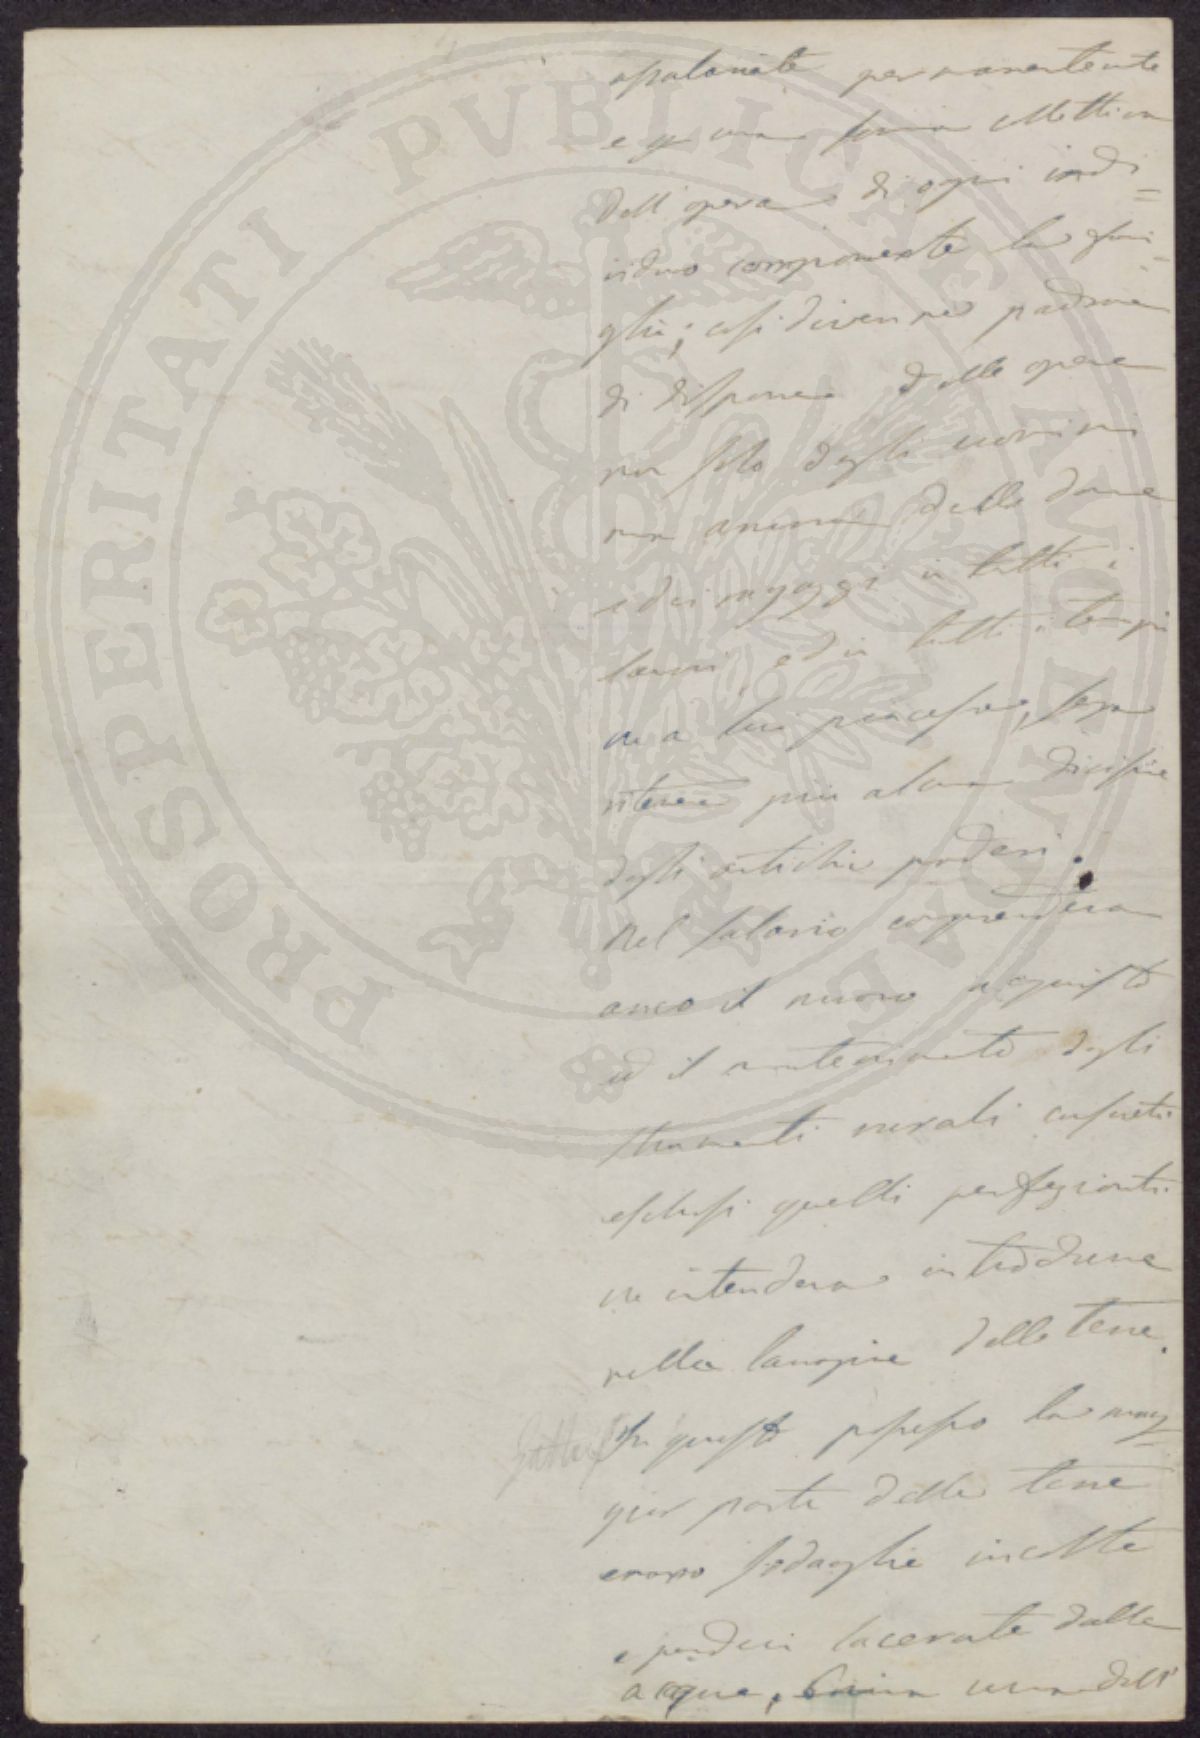 PROSPERITATI PVBLICAE AVGENDAE
permanentemente
e per una forma collettiva
dell'opera di ogni indi=
viduo componente la fami=
glia; così divenne padrone
di disporre delle opere
non solo degli uomini
ma ancora delle donne
e dei ragazzi in tutti i
lavori, ed in tutti i tempi
che a lui piacesse, senza
ritenere più alcuna divisione
degli antichi poderi.
Nel salario comprendeva
anco il nuovo acquisto
ed il mantenimento degli
strumenti rurali consueti
esclusi quelli perfezionati
che intendeva introdurre
nella lavorazione delle terre.
In questo possesso la mag=
gior parte delle terre
erano sodaglie incolte
e pendici lacerate dalle
acque, una dell'